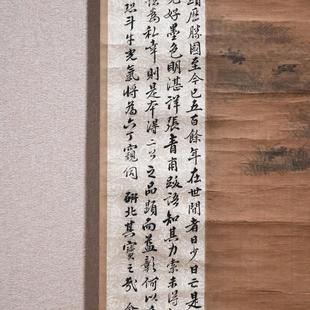 歷勝國至今已五百餘年在世間者日少日亡是
完好墨色明湛詳張青甫跋語知其力索未得
為私幸則是本得二公之品題而益彰何以
恐斗牛光氣將為六丁窺伺 研北其寶之哉